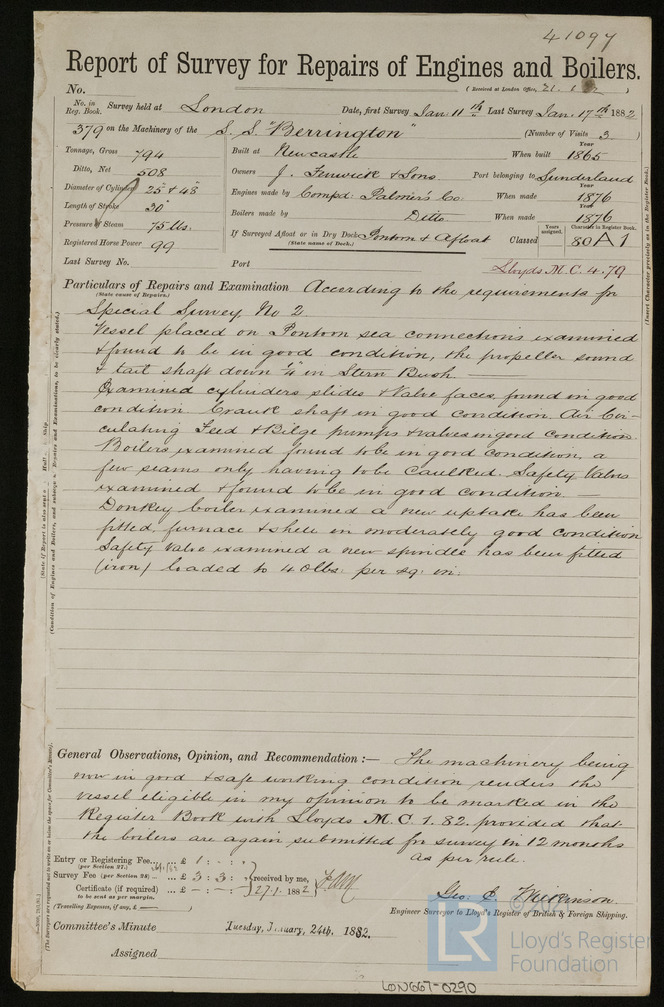 41097
Report of Survey for Repairs of Engines and Boilers.
No. (Received at London Office, 21. 1. 82)
No. in Reg. Book. Survey held at London Date, first Survey Jan. 11th Last Survey Jan. 17th 1882
379 on the Machinery of the S.S. "Berrington" (Number of Visits 3)
Tonnage, Gross 794 Built at Newcastle When built Year 1865
Ditto, Net 508 Owners J. Fenwick & Sons Port belonging to Sunderland
Diameter of Cylinder 25" & 48" Engines made by Compd: Palmer's Co. When made Year 1876
Length of Stroke 30" Boilers made by Ditto When made Year 1876
Pressure of Steam 75 lbs. If Surveyed Afloat or in Dry Dock Pontoon & Afloat Classed Years assigned. 80 Character in Register Book. A1
(State name of Dock.)
Registered Horse Power 99
Last Survey No. Port Lloyds M.C. 4.79
Particulars of Repairs and Examination According to the requirements for
(State cause of Repairs.)
Special Survey No 2
Vessel placed on Pontoon sea connections examined
& found to be in good condition, the propeller sound
& tail shaft down 1/4" in Stern Bush. —
Examined cylinders slides & Valve faces, found in good
condition Crank shaft in good condition, Air Cir-
culating Feed & Bilge pumps & valves in good condition
Boilers examined found to be in good condition, a
few seams only having to be caulked. Safety Valves
examined & found to be in good condition. —
Donkey boiler examined a new uptake has been
fitted, furnace & shell in moderately good condition
Safety Valve examined a new spindle has been fitted
(iron) loaded to 40 lbs. per sq. in.
General Observations, Opinion, and Recommendation :— The machinery being
now in good & safe working condition renders the
vessel eligible in my opinion to be marked in the
Register Book with Lloyds M.C. 1. 82. provided that
the boilers are again submitted for survey in 12 months
as per rule.
Entry or Registering Fee... £ 1 : - : -
(per Section 27.)
Survey Fee (per Section 28) ... £ 3 : 3 : - received by me,
Certificate (if required) ... £ - : - : - 27.1. 1882
to be sent as per margin.
(Travelling Expenses, if any, £ )
Geo. E. Wilkinson.
Engineer Surveyor to Lloyd's Register of British & Foreign Shipping.
Committee's Minute Tuesday, January, 24th, 1882.
Assigned
(State if Report is also sent on Hull or Ship.
(Condition of Engines and Boilers, and extent of Repairs and Examinations, to be clearly stated.)
(Insert Character precisely as in the Register Book.)
(The Surveyors are requested not to write on or below the space for Committee's Minute).
LR
Lloyd's Register
Foundation
LON667-0290